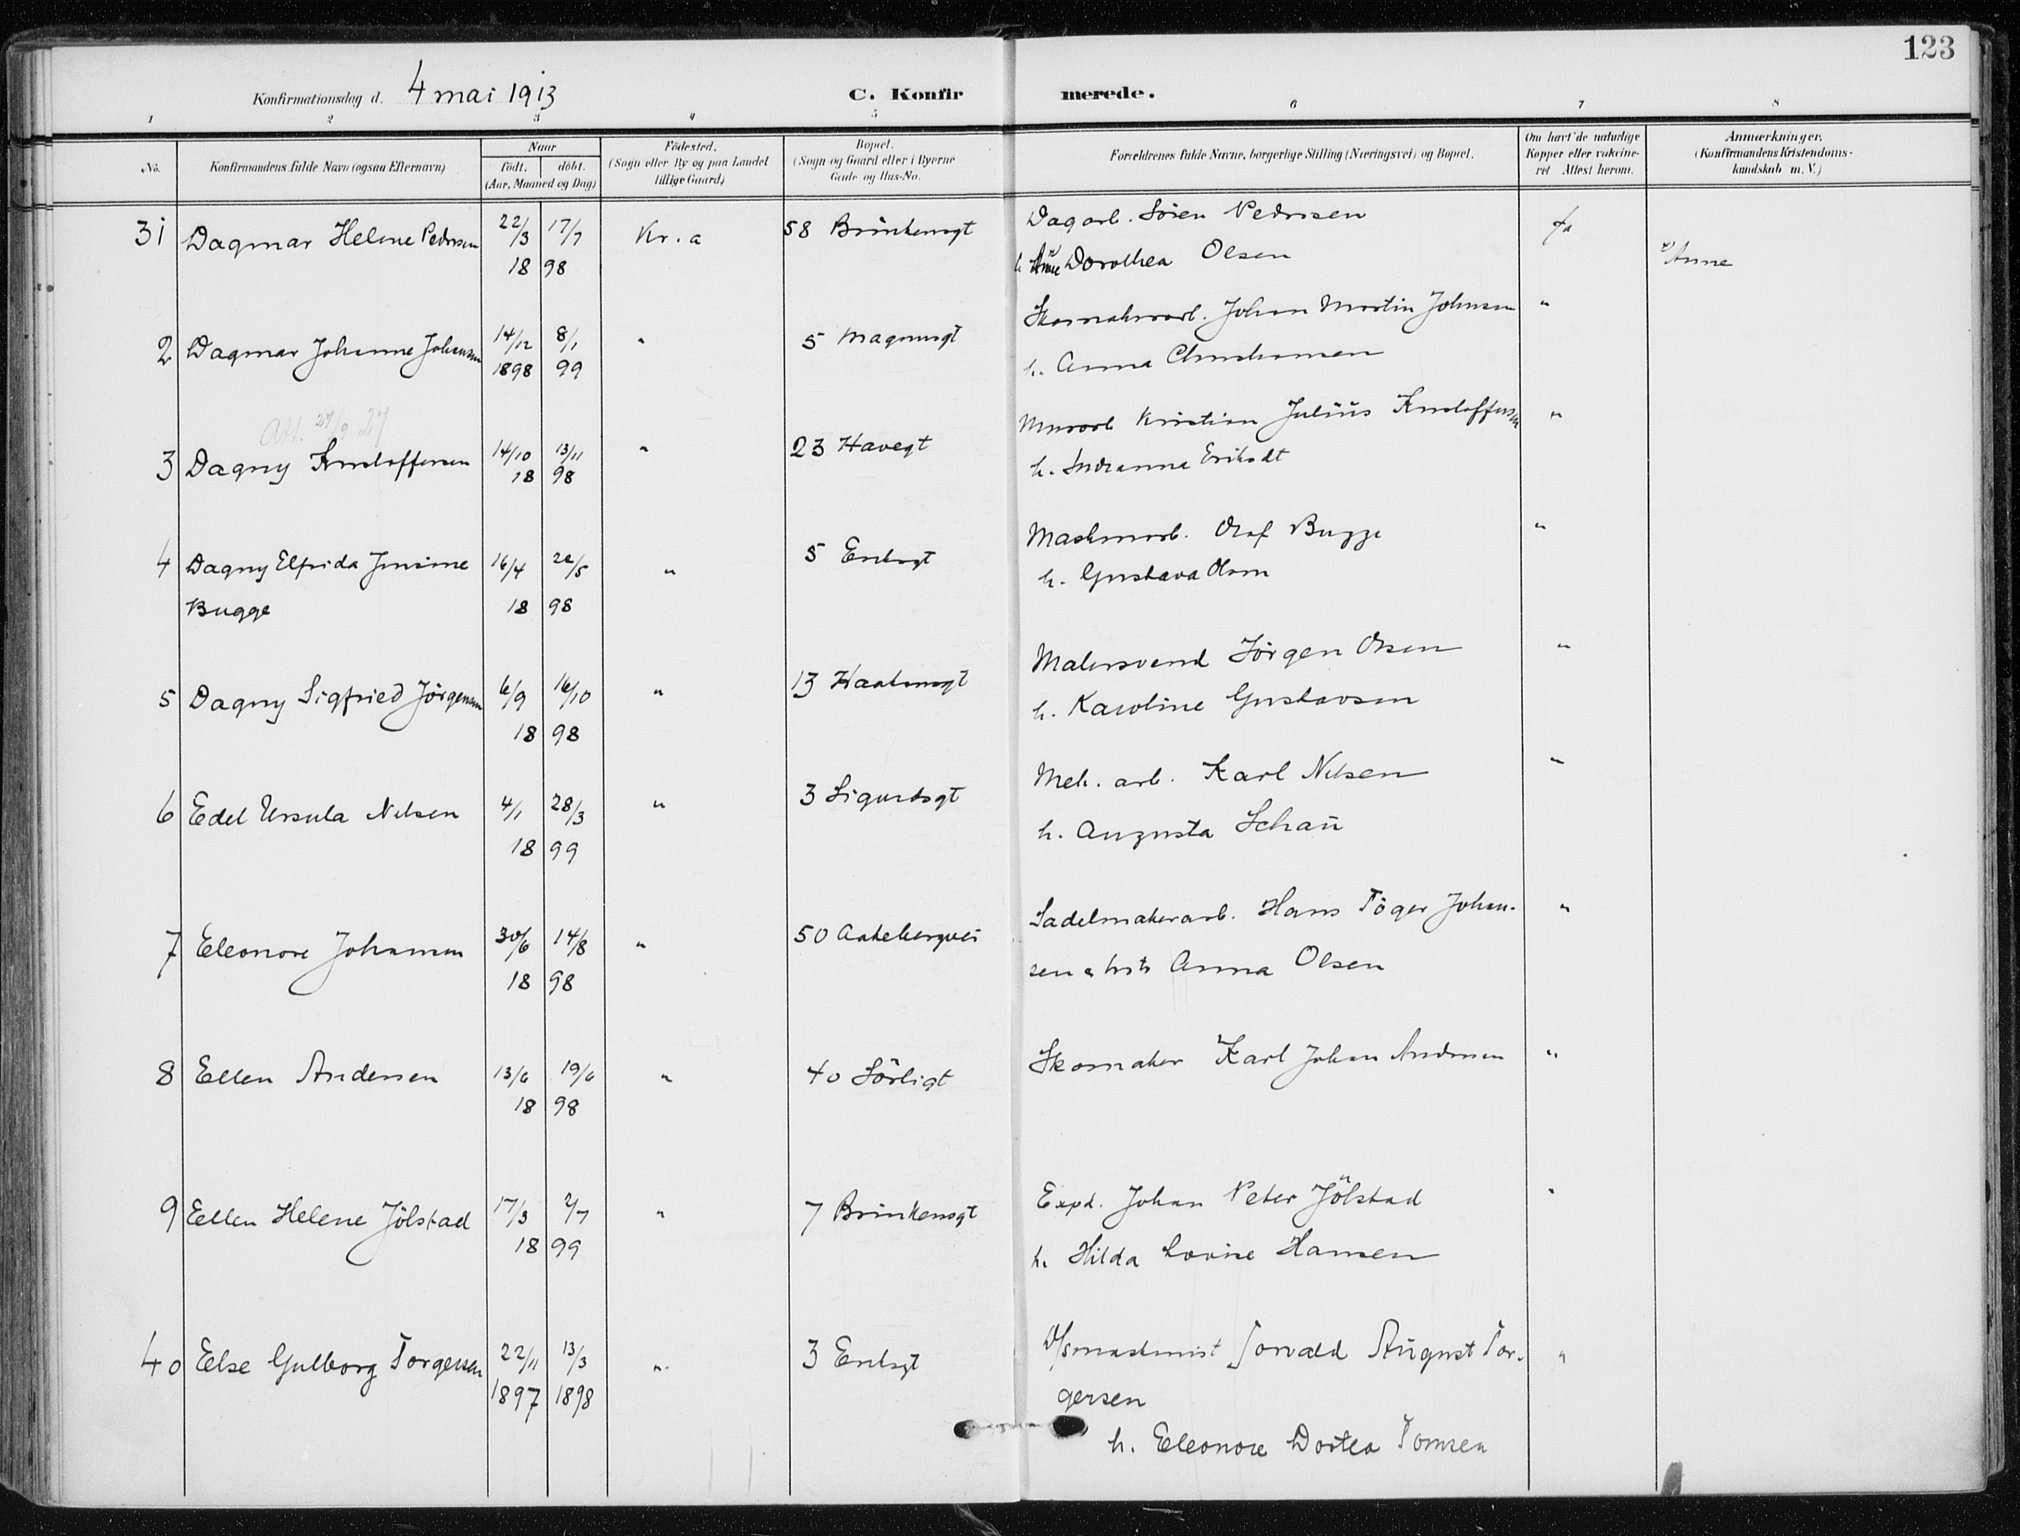 123
Konfirmationsdag d. 4 mai 1913 C. Konfirmerede.
1 2 3 4 5 6 7 8
No. Konfirmandens fulde Navn (ogsaa Efternavn) Naar født. døbt. (Aar, Maaned og Dag) Fødested. (Sogn eller By og paa Landet tillige Gaard) Bopæl. (Sogn og Gaard eller i Byerne Gade og Hus-No. Forældrenes fulde Navne, borgerlige Stilling (Næringsvei) og Bopæl. Om havt de naturlige Kopper eller vaccineret Attest herom. Anmærkninger. (Konfirmandens Kristendomskundskab m. V.)
31 Dagmar Helene Pedersen 22/3 17/7 Kr.a 58 Brinkensgt Dagarb. Søren Pedersen ja
18 98 h Anne Dorothea Olsen Anne
2 Dagmar Johanne Johansen 14/12 8/1 " 5 Magnusgt Skomakerarb. Johan Martin Johnsen "
1898 99 h. Anna Christiansen
Att. 27/9 27
3 Dagny Kristoffersen 14/10 13/11 " 23 Havegt Murarb Kristian Julius Kristoffersen "
18 98 h. Eriksdt
4 Dagny Elfrida Jensine 16/4 22/5 " 5 Enebgt Maskinarb. Olaf Bugge "
Bugge 18 98 h. Gustava Olsen
5 Dagny Sigfried Jörgensen 6/9 16/10 " 13 Malersvend Jörgen Olsen "
18 98 h. Karoline Gustavsen
6 Edel Ursula Nilsen 4/1 28/3 " 3 Sigurdsgt Mek. arb. Karl Nilsen "
18 99 h. Augusta Schau
7 Eleonore Johansen 30/6 14/8 " 50 Aakebergvei Sadelmakerarb. Hans Töger Johan-
18 98 sen & hstr Anna Olsen "
8 Ellen Andersen 13/6 19/6 " 40 Sörligt Skomaker Karl Johan Andersen "
18 98
9 Ellen Helene Jölstad 17/3 2/7 " 7 Brinkensgt Exped. Johan Peter Jölstad "
18 99 h. Hilda Lovise Hansen
40 Else Gulborg Torgersen 22/11 13/3 " 3 Enebgt D/smaskinist Torvald August Tor- "
1897 1898 gersen
h. Eleonore Dortea Tomsen